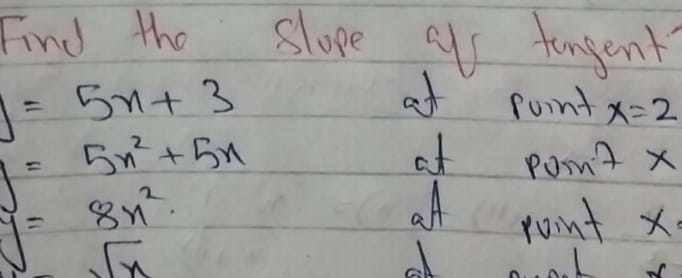 Find the slope of tangent
y = 5x + 3 at point x = 2
y = 5x² + 5x at point x
y = 8x². at point x
√x at point x